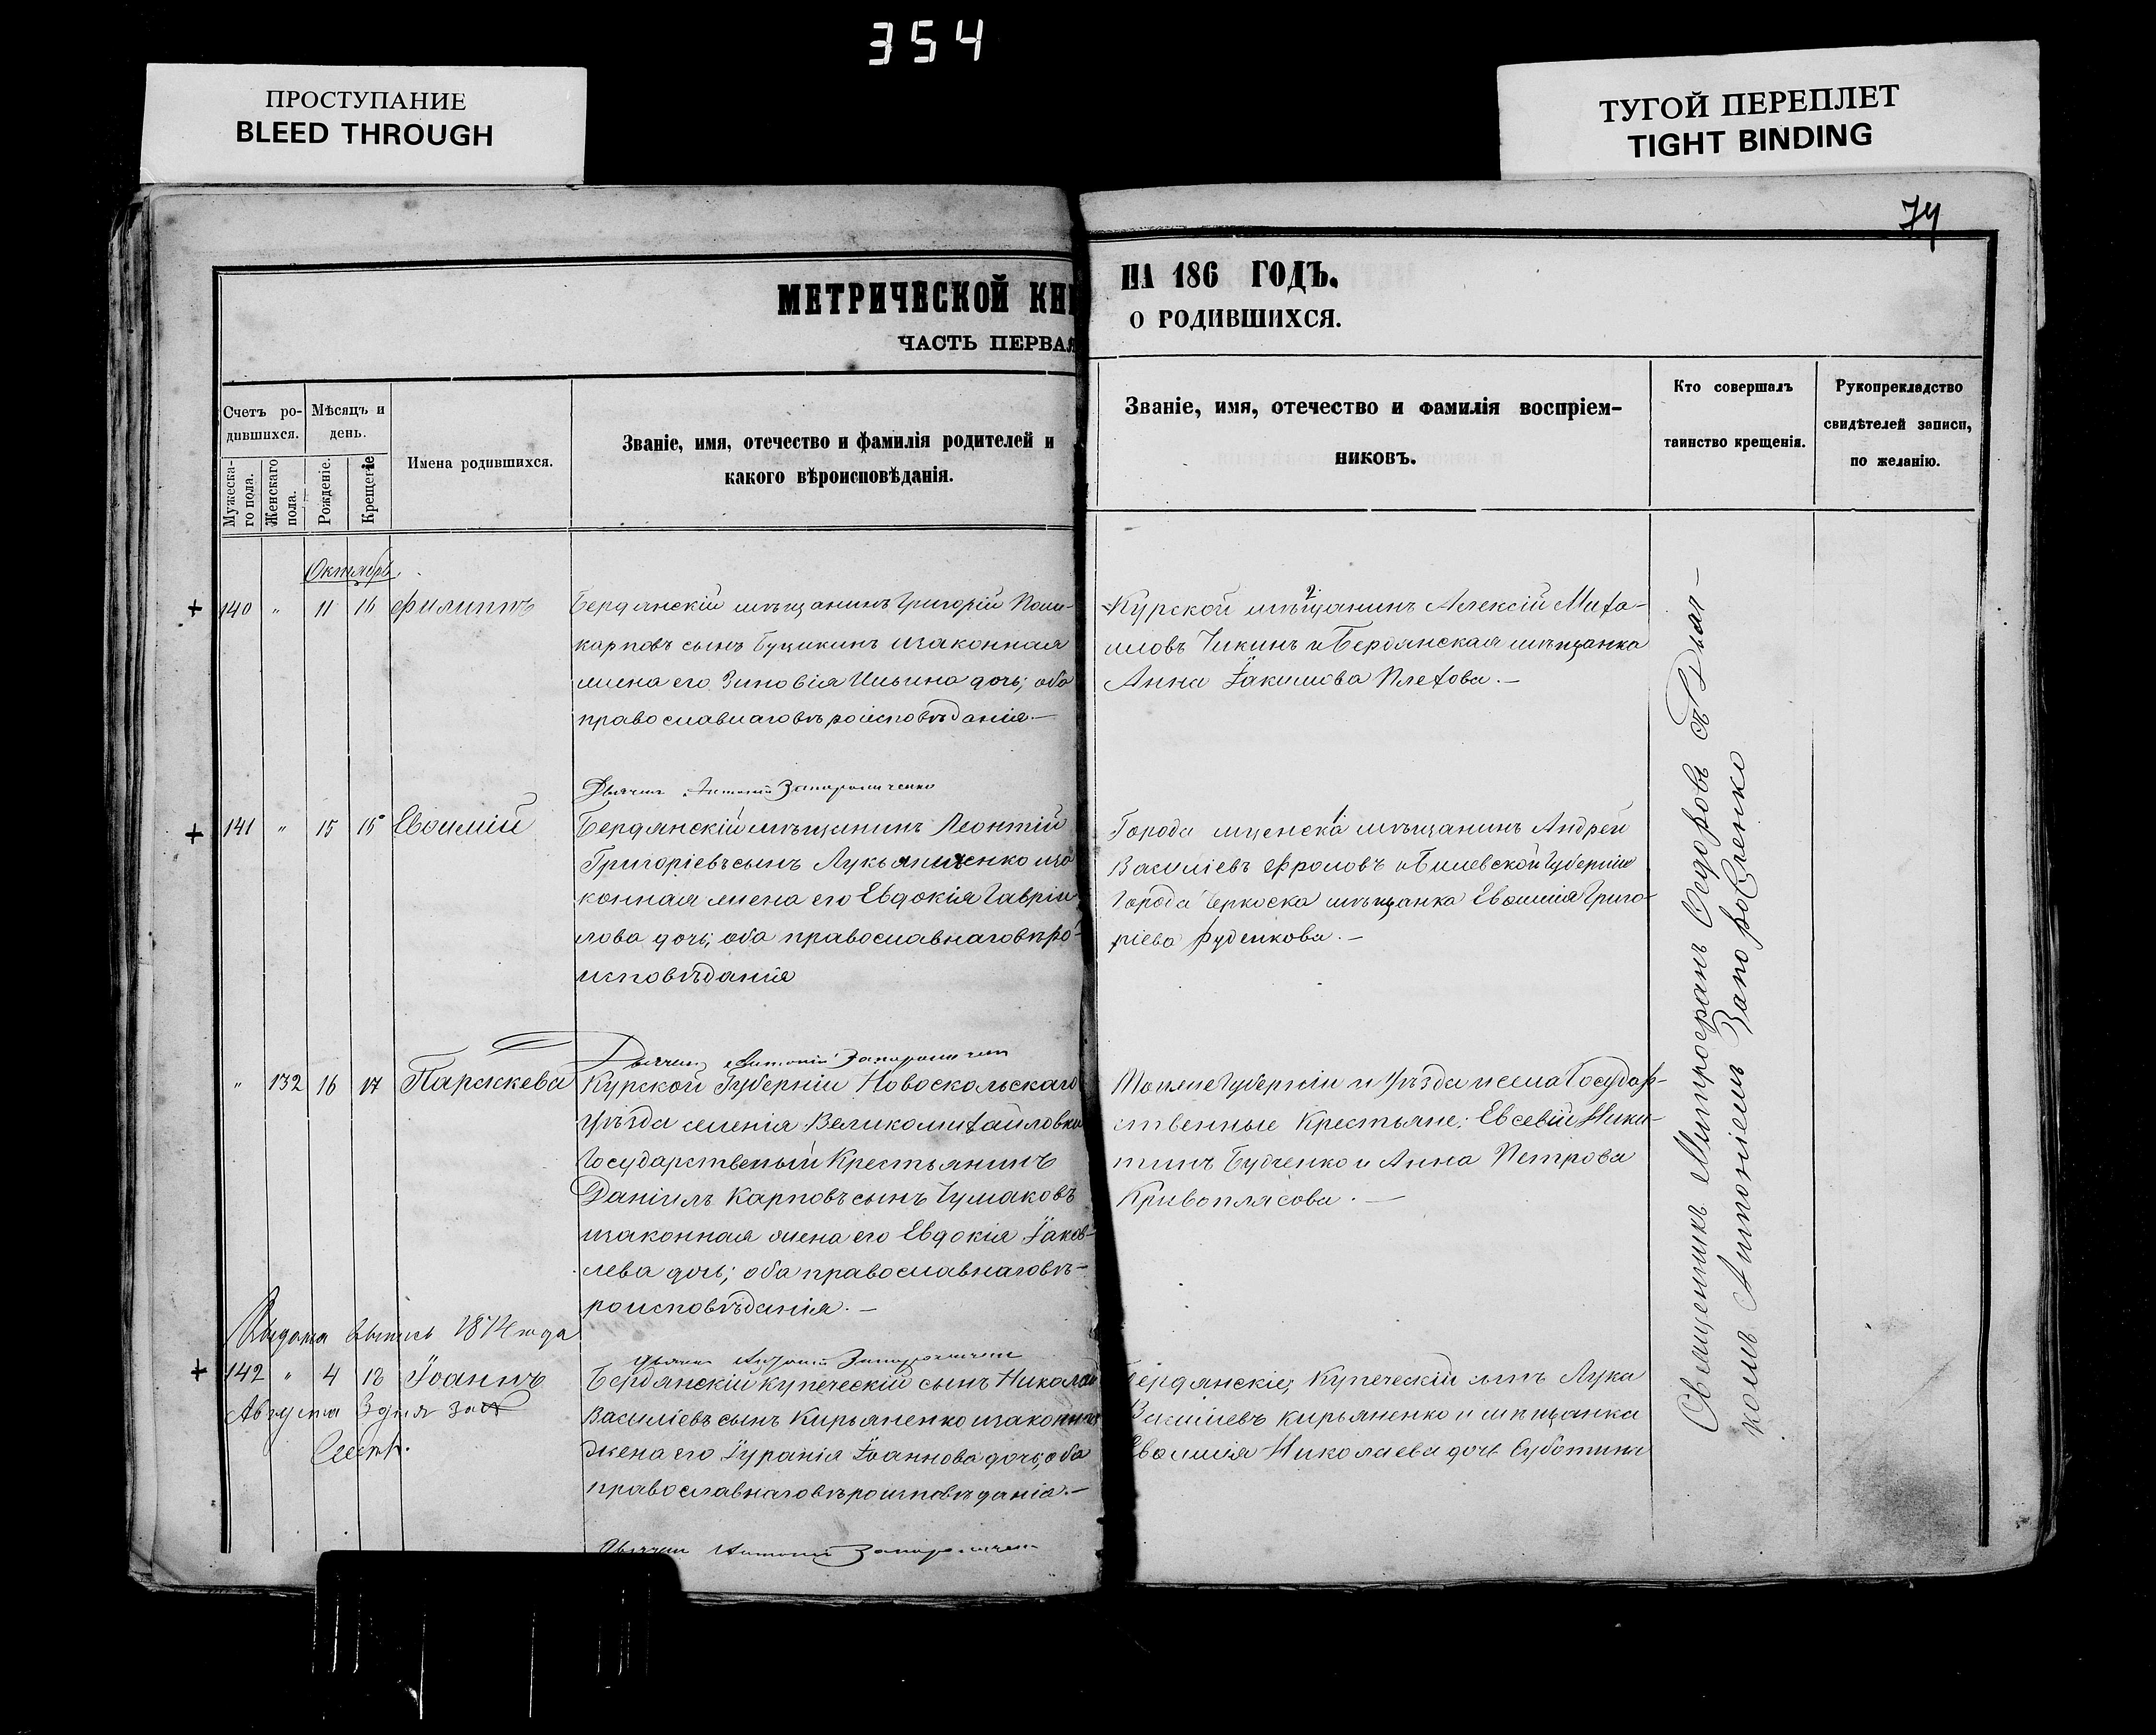 354
ПРОСТУПАНИЕ
BLEED THROUGH
ТУГОЙ ПЕРЕПЛЕТ
TIGHT BINDING
74
МЕТРИЧЕСКОЙ КНИ
ЧАСТЬ ПЕРВАЯ
НА 186 ГОДЪ.
О РОДИВШИХСЯ.
Счетъ ро-
дившихся.
Мѣсяцъ и
день.
Мужеска-
го пола.
Женскаго
пола.
Рожденіе.
Крещеніе
Имена родившихся.
Званіе, имя, отечество и фамилія родителей и
какого вѣроисповѣданія.
Званіе, имя, отечество и фамилія воспріем-
никовъ.
Кто совершалъ
таинство крещенія.
Рукоприкладство
свидѣтелей записи,
по желанію.
Октябрь
140 " 11 16 Филиппъ
Бердянскій мѣщанинъ Григорій Поли-
карповъ сынъ Буцикинъ и законная
жена его Зиновія Ильина дочь; оба
православнаго вѣроисповѣданія.—
Курской мѣщанинъ Алексій Миха-
иловъ Чикинъ и Бердянская мѣщанка
Анна Іакимова Плехова.—
Дьячекъ Антоній Запорожченко
141 " 15 15 Евѳимій
Бердянскій мѣщанинъ Леонтій
Григоріевъ сынъ Лукьянченко и за
конная жена его Евдокія Гаврiи
лова дочь; оба православнаго вѣро-
исповѣданія
Города Мценска мѣщанинъ Андрей
Василіевъ Фроловъ и Кіевской Губерніи
Города Черкаска мѣщанка Евѳимія Григо-
ріева Руденкова.—
Дьячекъ Антоній Запорожченко
" 132 16 17 Параскева
Курской Губерніи Новоскольскаго
Уѣзда имѣнія Великомихайловки
Государственый Крестьянинъ
Даніилъ Карповъ сынъ Чумаковъ
и законная жена его Евдокія Іаков-
лева дочь; оба православнаго вѣ-
роисповѣданія.—
Той же Губерніи и Уѣзда и села Государ-
ственные Крестьяне: Евсевій Ники-
тинъ Будченко и Анна Петрова
Кривоплясова.—
Выдана выпись 1874 года
Дьячекъ Антоній Запорожченко
142 " 4 18 Іоаннъ
Августа 3 дня за №
Бердянскій купеческій сынъ Николай
Василіевъ сынъ Кирьяненко и законная
жена его Іуранія Іоаннова дочь; оба
православнаго вѣроисповѣданія.—
Бердянскіе; Купеческій сынъ Лука
Василіевъ Кирьяненко и мѣщанка
Евѳимія Николаева дочь Суботина
Дьячекъ Антоній Запорожченко
Священникъ Митрофанъ Ѳедоровъ съ Дьяч-
комъ Антоніемъ Запорожченко